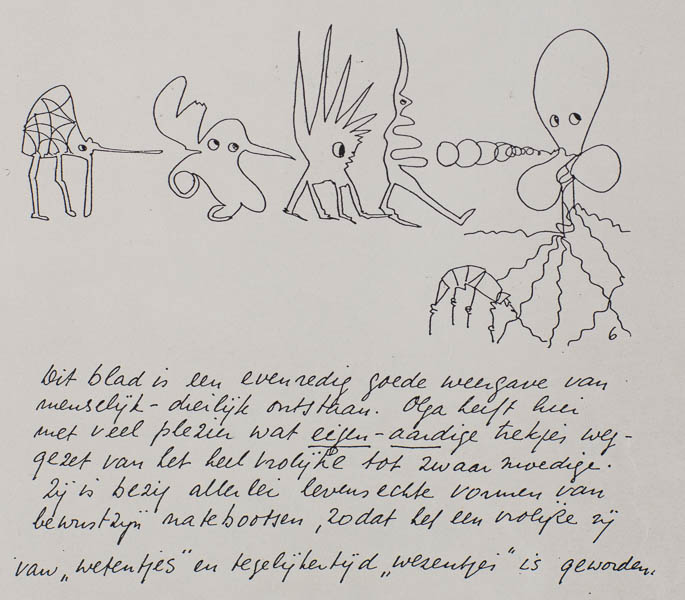 6
Dit blad is een evenredig goede weergave van
menselijk-dierlijk ontstaan. Olga heeft hier
met veel plezier wat eigen-aardige trekjes weg-
gezet van het heel vrolijke tot zwaarmoedige.
Zij is bezig allerlei levensechte vormen van
bewustzijn natebootsen, zodat het een vrolijke rij
van „wetentjes" en tegelijkertijd „wezentjes" is geworden.